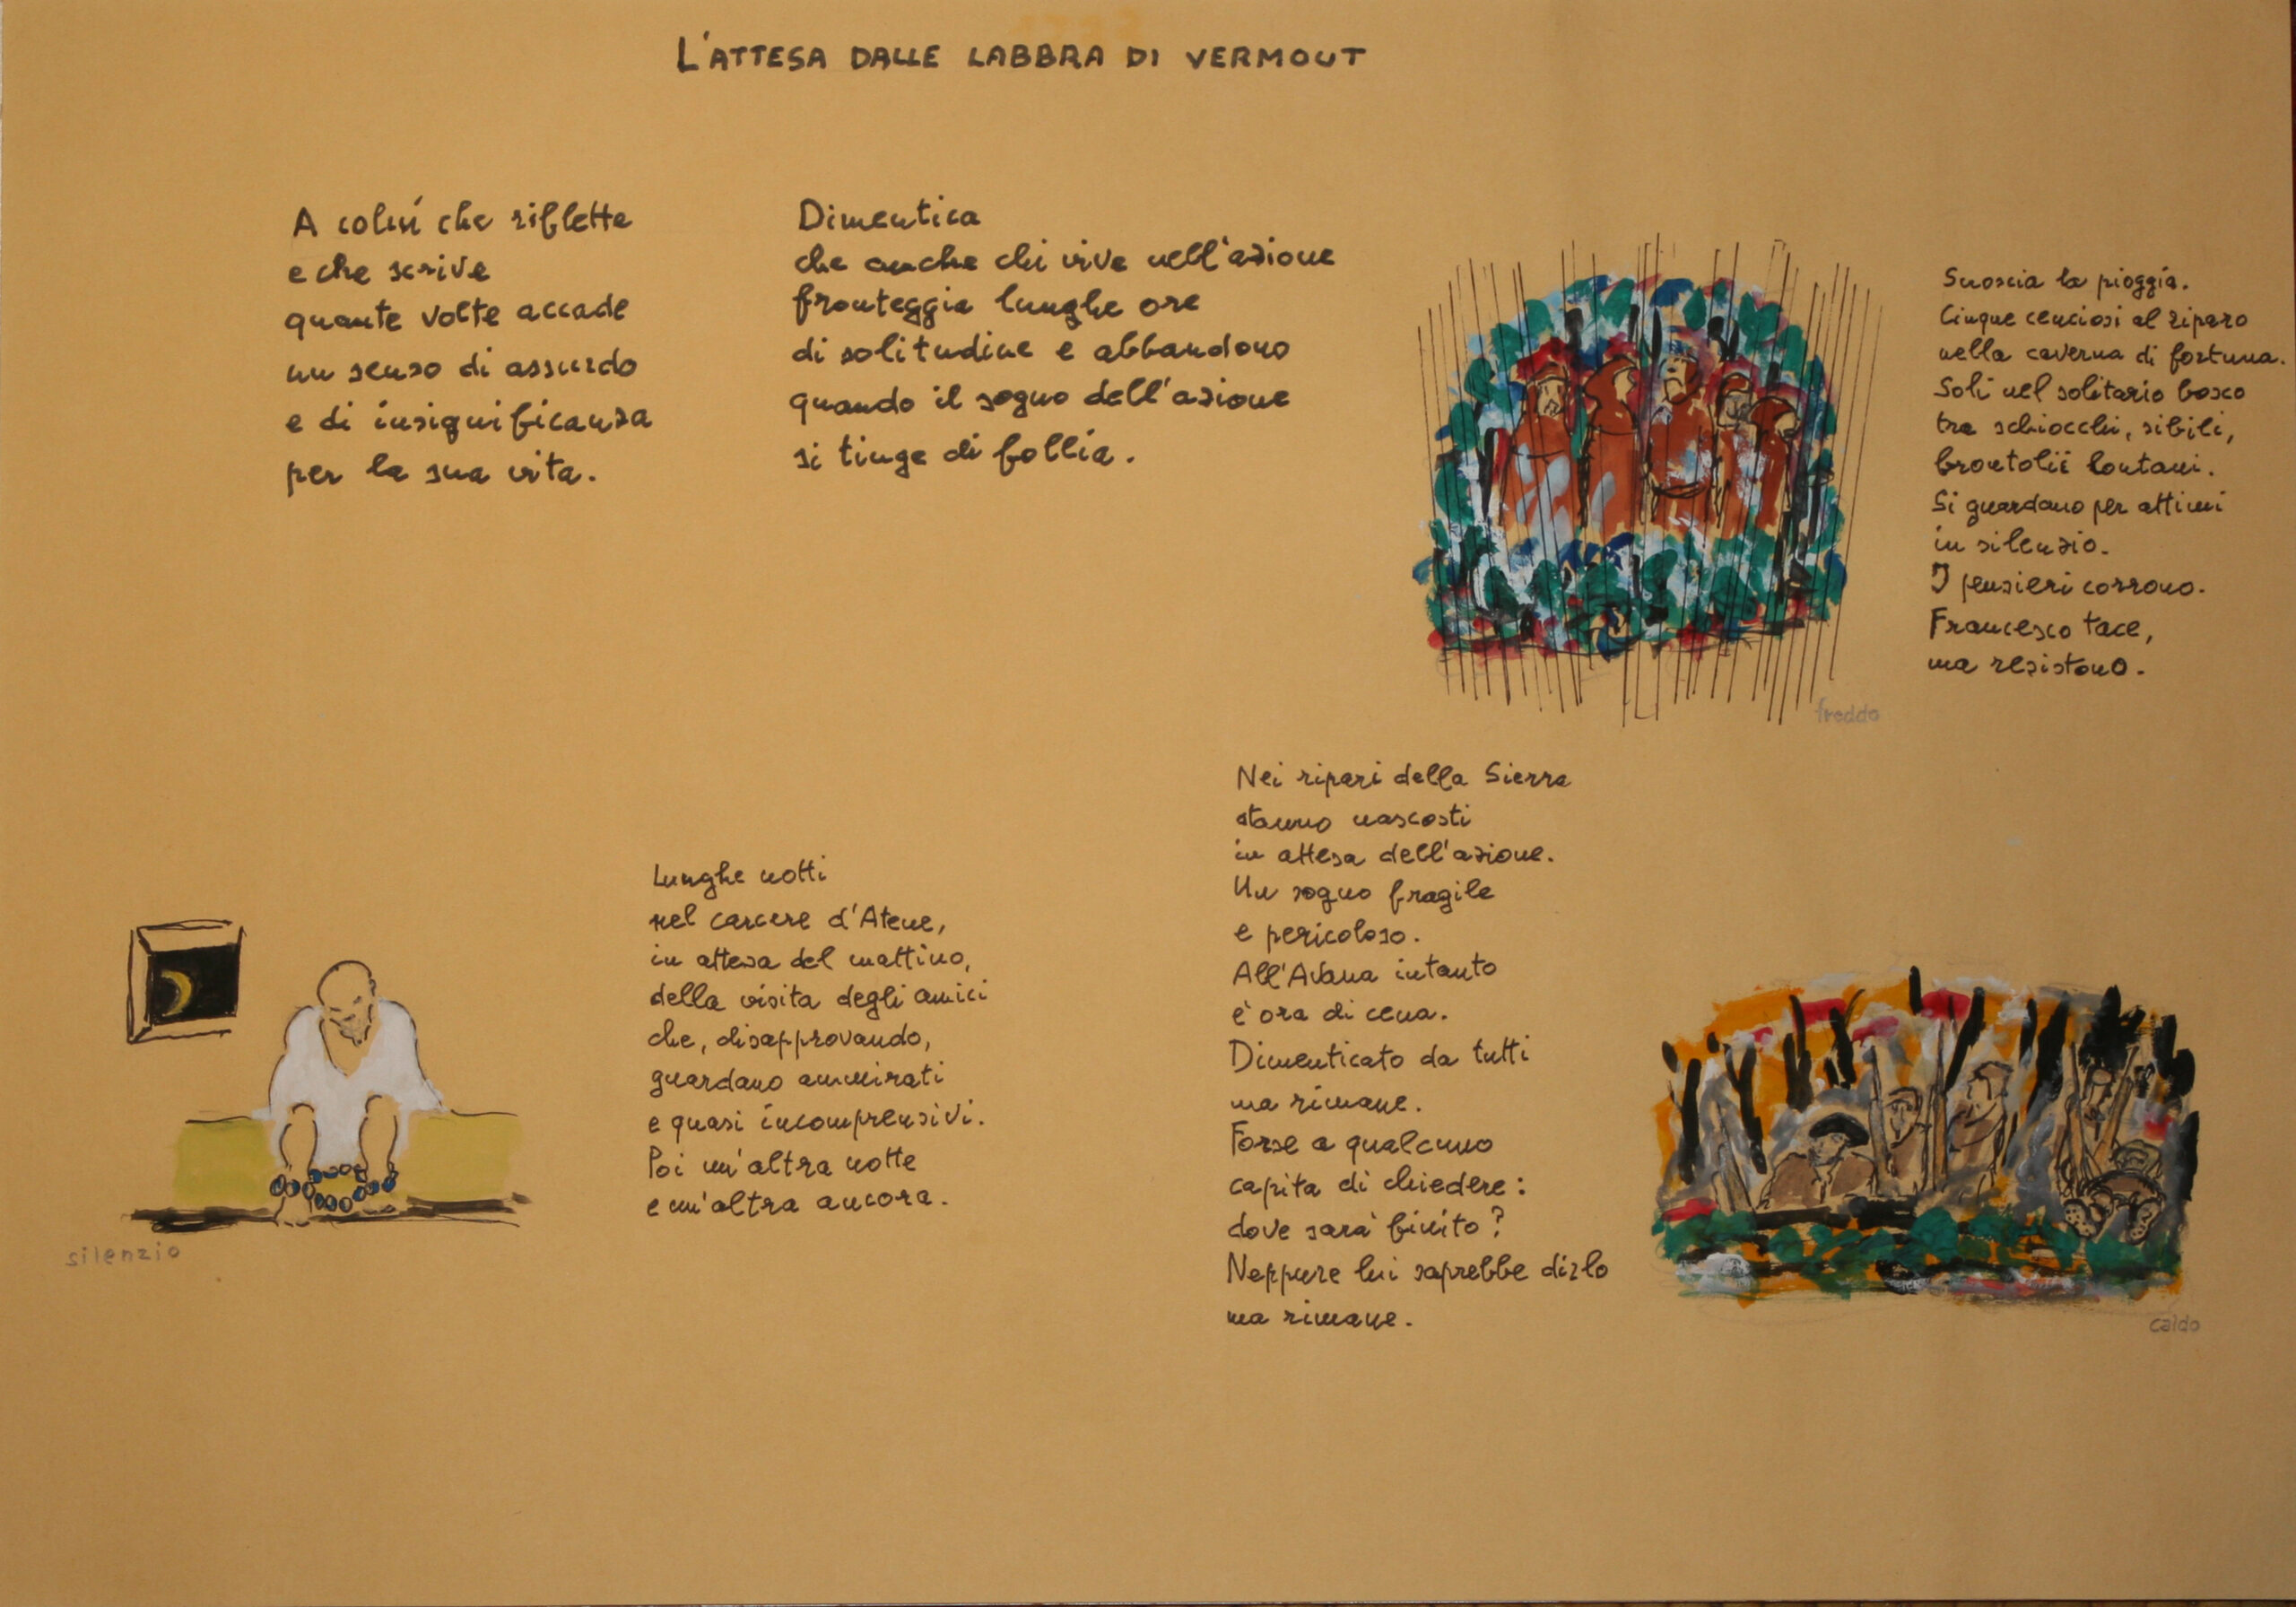 L'ATTESA DALLE LABBRA DI VERMOUT
A colui che riflette
e che scrive
quante volte accade
un senso di assurdo
e di insignificanza
per la sua vita.
Dimentica
che anche chi vive nell'azione
fronteggia lunghe ore
di solitudine e abbandono
quando il sogno dell'azione
si tinge di follia.
Scroscia la pioggia.
Cinque cenciosi al riparo
nella caverna di fortuna.
Soli nel solitario bosco
tra schiocchi, sibili,
brontolii lontani.
Si guardano per attimi
in silenzio.
I pensieri corrono.
Francesco tace,
ma resistono.
freddo
Lunghe notti
nel carcere d'Atene,
in attesa del mattino,
della visita degli amici
che, disapprovando,
guardano ammirati
e quasi incomprensivi.
Poi un'altra notte
e un'altra ancora.
silenzio
Nei ripari della Sierra
stanno nascosti
in attesa dell'azione.
Un sogno fragile
e pericoloso.
All'Avana intanto
è ora di cena.
Dimenticato da tutti
ma rimane.
Forse a qualcuno
capita di chiedere:
dove sarà finito?
Neppure lui saprebbe dirlo
ma rimane.
caldo